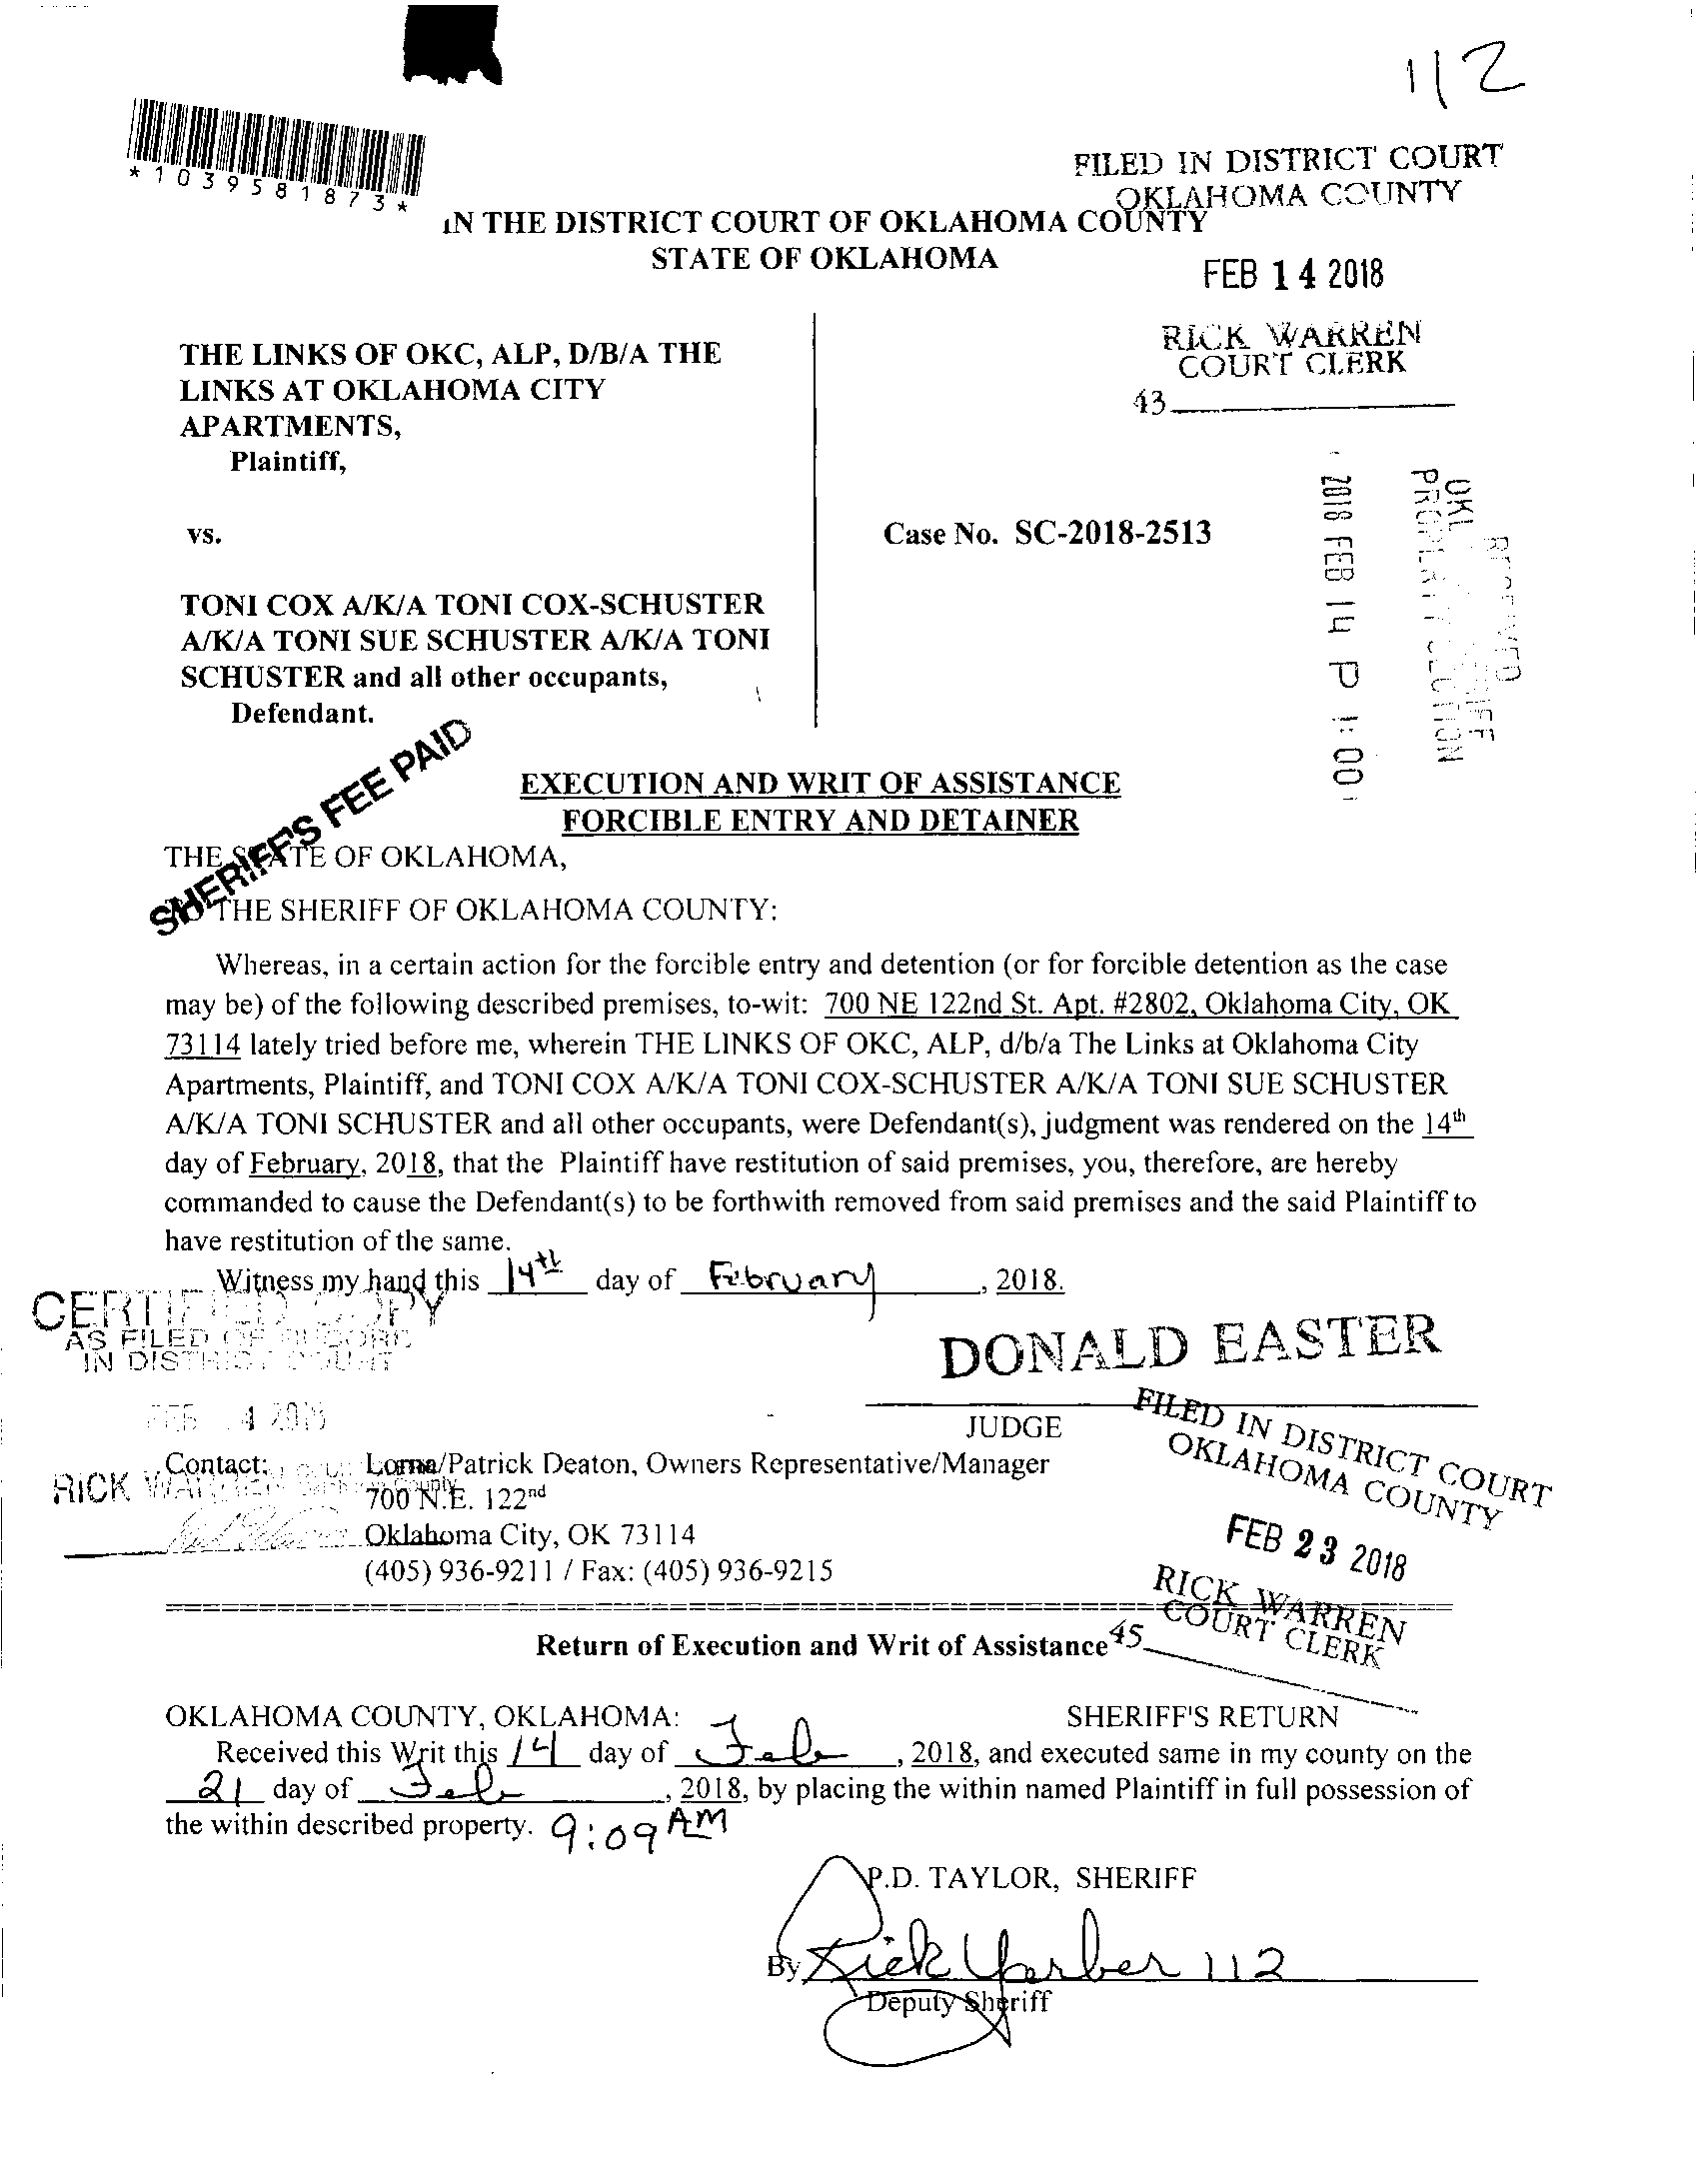 112
*1039581873*
FILED IN DISTRICT COURT
OKLAHOMA COUNTY
IN THE DISTRICT COURT OF OKLAHOMA COUNTY
STATE OF OKLAHOMA
FEB 14 2018
RICK WARREN
COURT CLERK
43
THE LINKS OF OKC, ALP, D/B/A THE
LINKS AT OKLAHOMA CITY
APARTMENTS,
Plaintiff,
vs.
Case No. SC-2018-2513
TONI COX A/K/A TONI COX-SCHUSTER
A/K/A TONI SUE SCHUSTER A/K/A TONI
SCHUSTER and all other occupants,
Defendant.
2018 FEB 14 P 1:00
SHERIFF'S FEE PAID
EXECUTION AND WRIT OF ASSISTANCE
FORCIBLE ENTRY AND DETAINER
THE STATE OF OKLAHOMA,
TO THE SHERIFF OF OKLAHOMA COUNTY:
Whereas, in a certain action for the forcible entry and detention (or for forcible detention as the case
may be) of the following described premises, to-wit: 700 NE 122nd St. Apt. #2802, Oklahoma City, OK
73114 lately tried before me, wherein THE LINKS OF OKC, ALP, d/b/a The Links at Oklahoma City
Apartments, Plaintiff, and TONI COX A/K/A TONI COX-SCHUSTER A/K/A TONI SUE SCHUSTER
A/K/A TONI SCHUSTER and all other occupants, were Defendant(s), judgment was rendered on the 14th
day of February, 2018, that the Plaintiff have restitution of said premises, you, therefore, are hereby
commanded to cause the Defendant(s) to be forthwith removed from said premises and the said Plaintiff to
have restitution of the same.
Witness my hand this 14th day of February, 2018.
CERTIFIED COPY
AS FILED OF RECORD
IN DISTRICT COURT
DONALD EASTER
JUDGE
FILED IN DISTRICT COURT
OKLAHOMA COUNTY
FEB 23 2018
RICK WARREN
COURT CLERK
45
Contact: Lorna/Patrick Deaton, Owners Representative/Manager
RICK WARREN
700 N.E. 122nd
Oklahoma City, OK 73114
(405) 936-9211 / Fax: (405) 936-9215
Return of Execution and Writ of Assistance
OKLAHOMA COUNTY, OKLAHOMA: SHERIFF'S RETURN
Received this Writ this 14 day of Feb, 2018, and executed same in my county on the
21 day of Feb, 2018, by placing the within named Plaintiff in full possession of
the within described property. 9:09 AM
P.D. TAYLOR, SHERIFF
By Rick Yarber 112
Deputy Sheriff